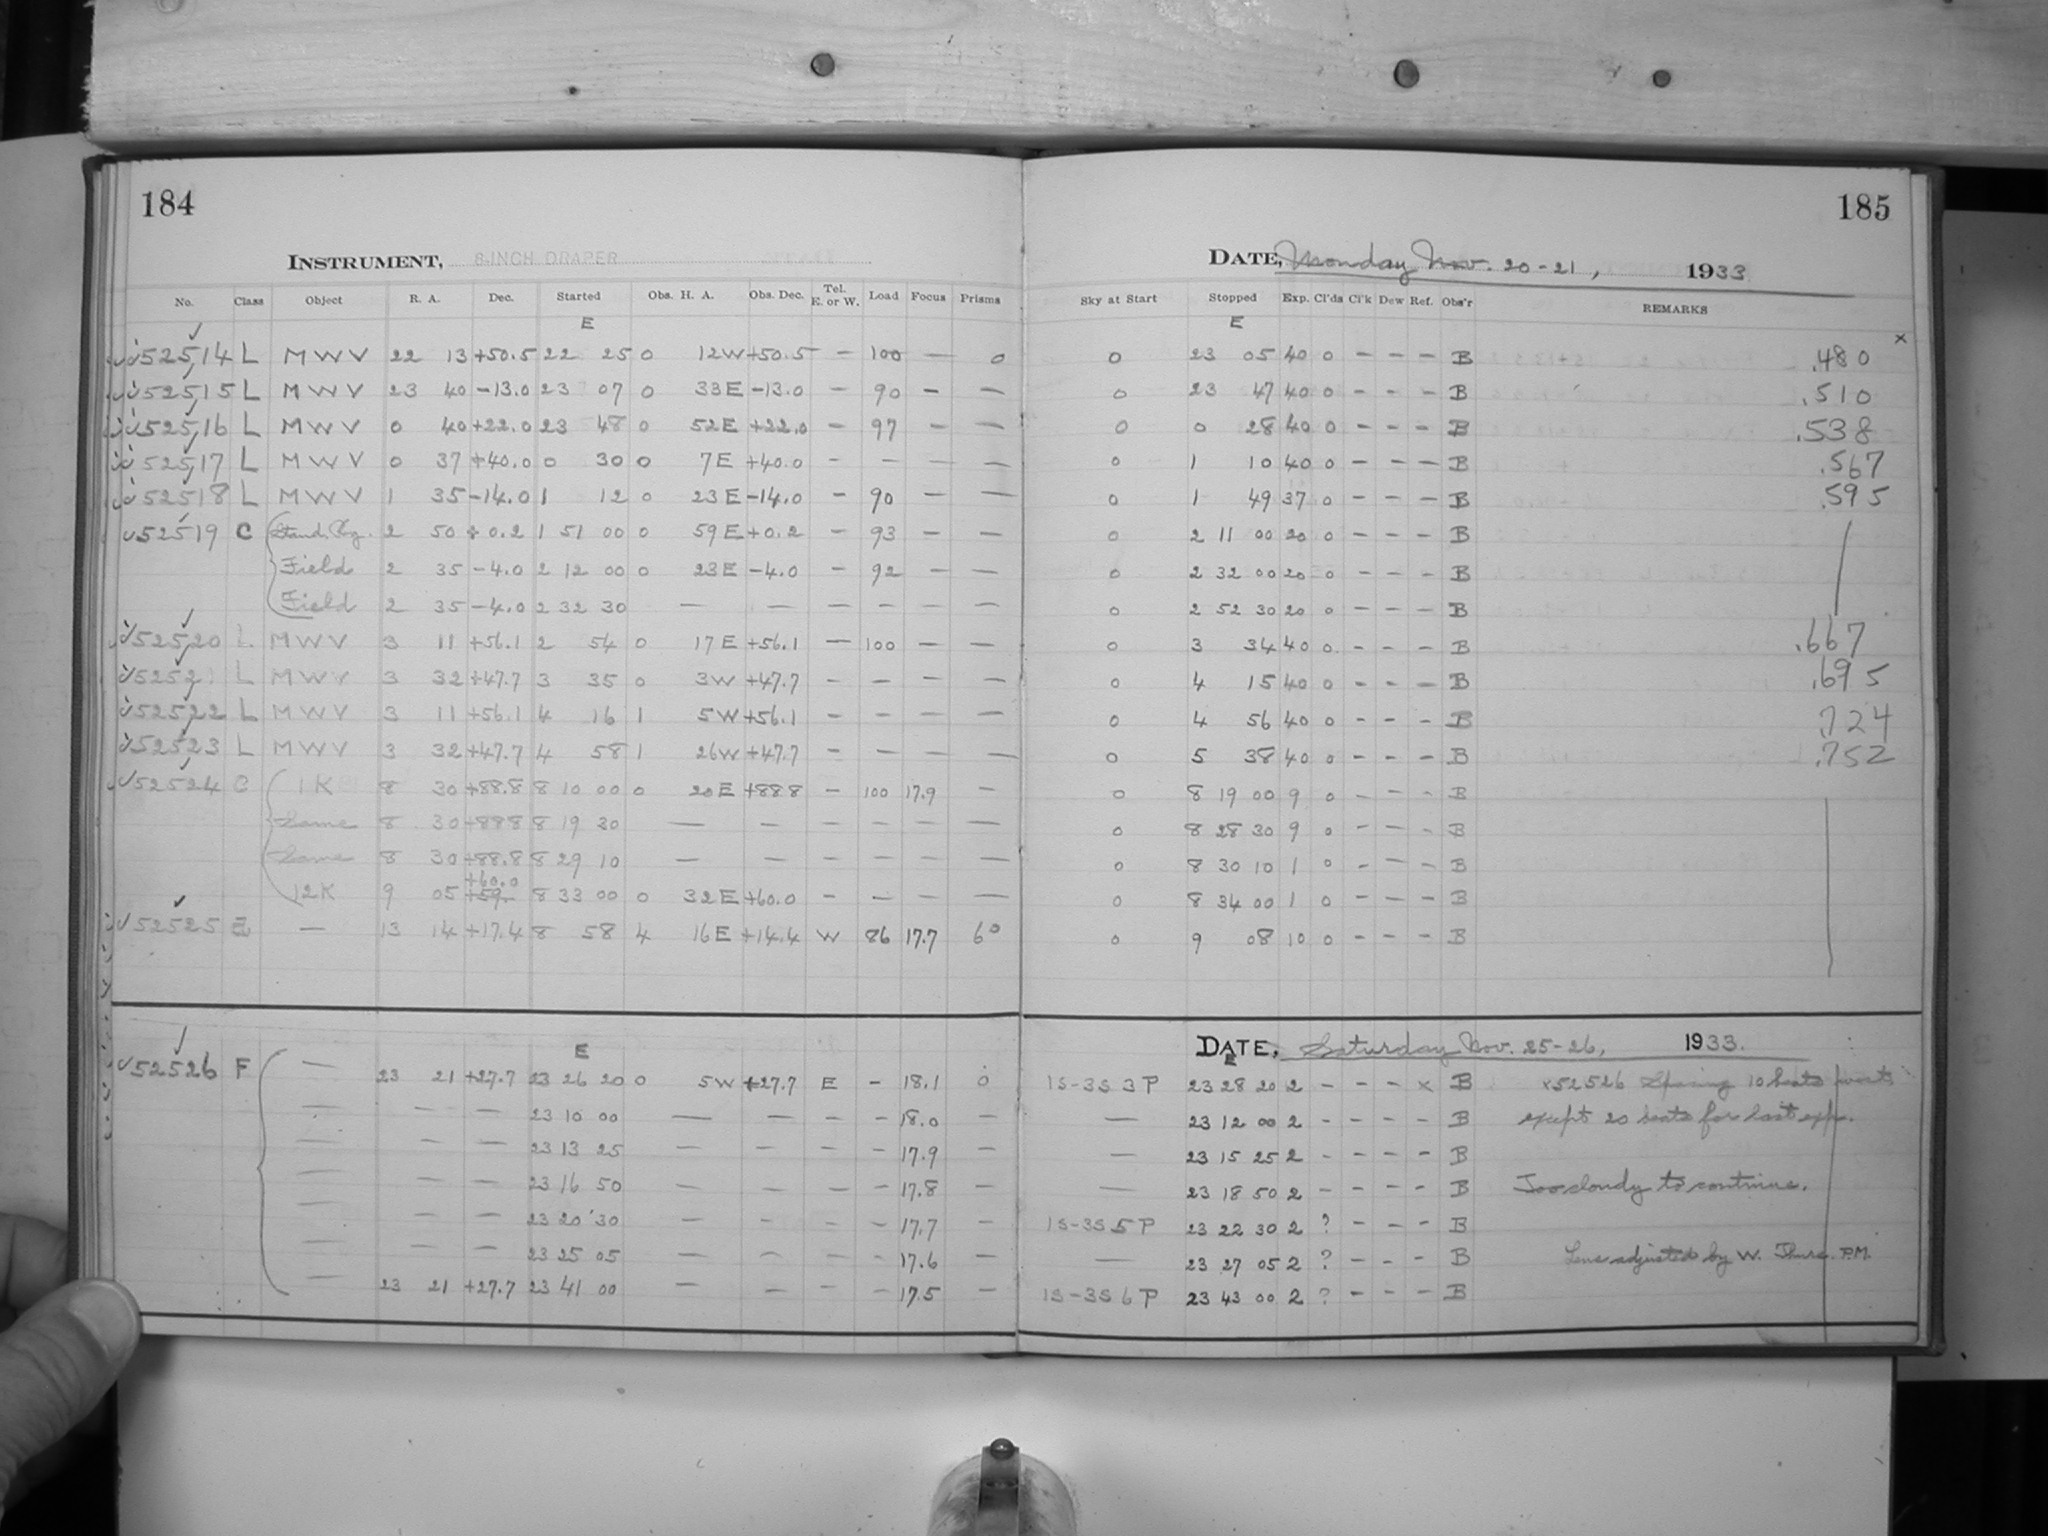 184
INSTRUMENT, 8-INCH DRAPER
No. Class Object R. A. Dec. Started Obs. H. A. Obs. Dec. Tel. E. or W. Load Focus Prisms
E
52514 L MWV 22 13 +50.5 22 25 0 12W +50.5 — 100 — 0
52515 L MWV 23 40 -13.0 23 07 0 33E -13.0 — 90 — —
52516 L MWV 0 40 +22.0 23 48 0 52E +22.0 — 97 — —
52517 L MWV 0 37 +40.0 0 30 0 7E +40.0 — — — —
52518 L MWV 1 35 -14.0 1 12 0 23E -14.0 — 90 — —
52519 C Stand. Rg. 2 50 +0.2 1 51 00 0 59E +0.2 — 93 — —
Field 2 35 -4.0 2 12 00 0 23E -4.0 — 92 — —
Field 2 35 -4.0 2 32 30 — — — — — —
52520 L MWV 3 11 +56.1 2 54 0 17E +56.1 — 100 — —
52521 L MWV 3 32 +47.7 3 35 0 3W +47.7 — — — —
52522 L MWV 3 11 +56.1 4 16 1 5W +56.1 — — — —
52523 L MWV 3 32 +47.7 4 58 1 26W +47.7 — — — —
52524 C 1K 8 30 +88.8 8 10 00 0 20E +88.8 — 100 17.9 —
Same 8 30 +88.8 8 19 30 — — — — — —
Same 8 30 +88.8 8 29 10 — — — — — —
+60.0
12K 9 05 +59. 8 33 00 0 32E +60.0 — — — —
52525 — 13 14 +17.4 8 58 4 16E +14.4 W 86 17.7 6°
E
52526 F — 23 21 +27.7 23 26 20 0 5W +27.7 E — 18.1 0
— — — 23 10 00 — — — — 18.0 —
— — — 23 13 25 — — — — 17.9 —
— — — 23 16 50 — — — — 17.8 —
— — — 23 20 30 — — — — 17.7 —
— — — 23 25 05 — — — — 17.6 —
— 23 21 +27.7 23 41 00 — — — — 17.5 —
185
DATE, Monday Nov. 20-21, 1933
Sky at Start Stopped Exp. Cl'ds Cl'k Dew Ref. Obs'r REMARKS
E x
0 23 05 40 0 — — — B .480
0 23 47 40 0 — — — B .510
0 0 28 40 0 — — — B .538
0 1 10 40 0 — — — B .567
0 1 49 37 0 — — — B .595
0 2 11 00 20 0 — — — B
0 2 32 00 20 0 — — — B
0 2 52 30 20 0 — — — B
0 3 34 40 0 — — — B .667
0 4 15 40 0 — — — B .695
0 4 56 40 0 — — — B .724
0 5 38 40 0 — — — B .752
0 8 19 00 9 0 — — — B
0 8 28 30 9 0 — — — B
0 8 30 10 1 0 — — — B
0 8 34 00 1 0 — — — B
0 9 08 10 0 — — — B
DATE, Saturday Nov. 25-26, 1933.
E
1S-3S 3P 23 28 20 2 — — — x B x52526 Spacing 10 beats
— 23 12 00 2 — — — — B except 20 beats for last exp.
— 23 15 25 2 — — — — B
— 23 18 50 2 — — — — B Too cloudy to continue.
1S-3S 5P 23 22 30 2 ? — — — B
— 23 27 05 2 ? — — — B Lens adjusted by W. P.M.
1S-3S 6P 23 43 00 2 ? — — — B